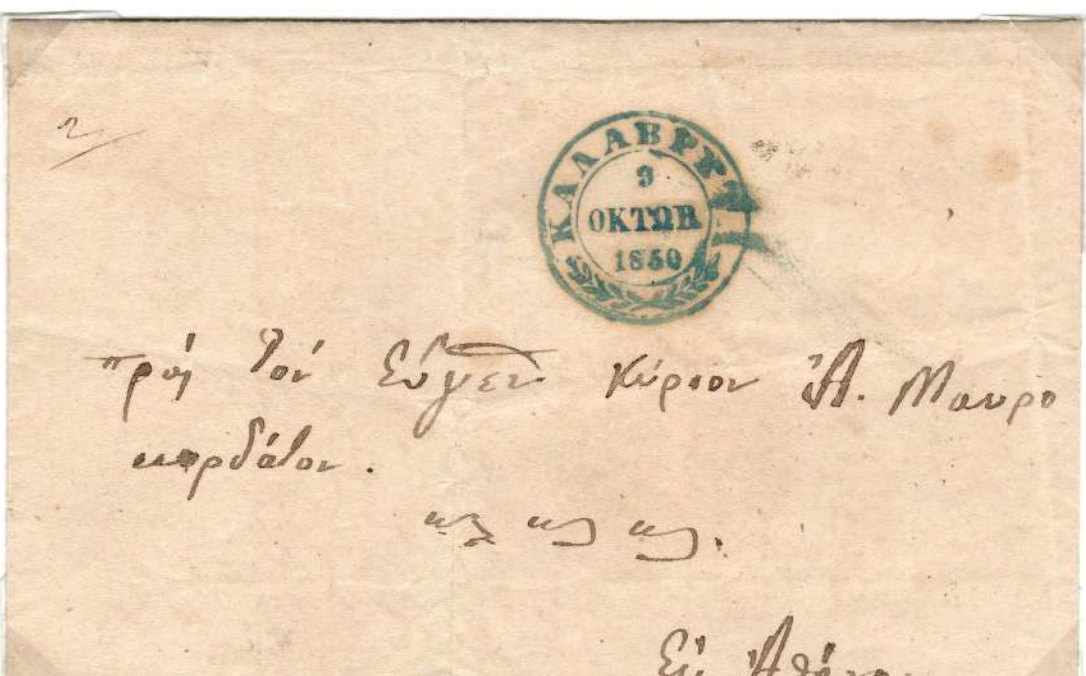 ΚΑΛΑΒΡΥΤ
9
ΟΚΤΩΒ
1850
πρὸς τὸν Εὐγεν κύριον Ἀ. Μαυρο
κορδάτον.
κλ κλ κλ.
Εἰς Ἀθήνας